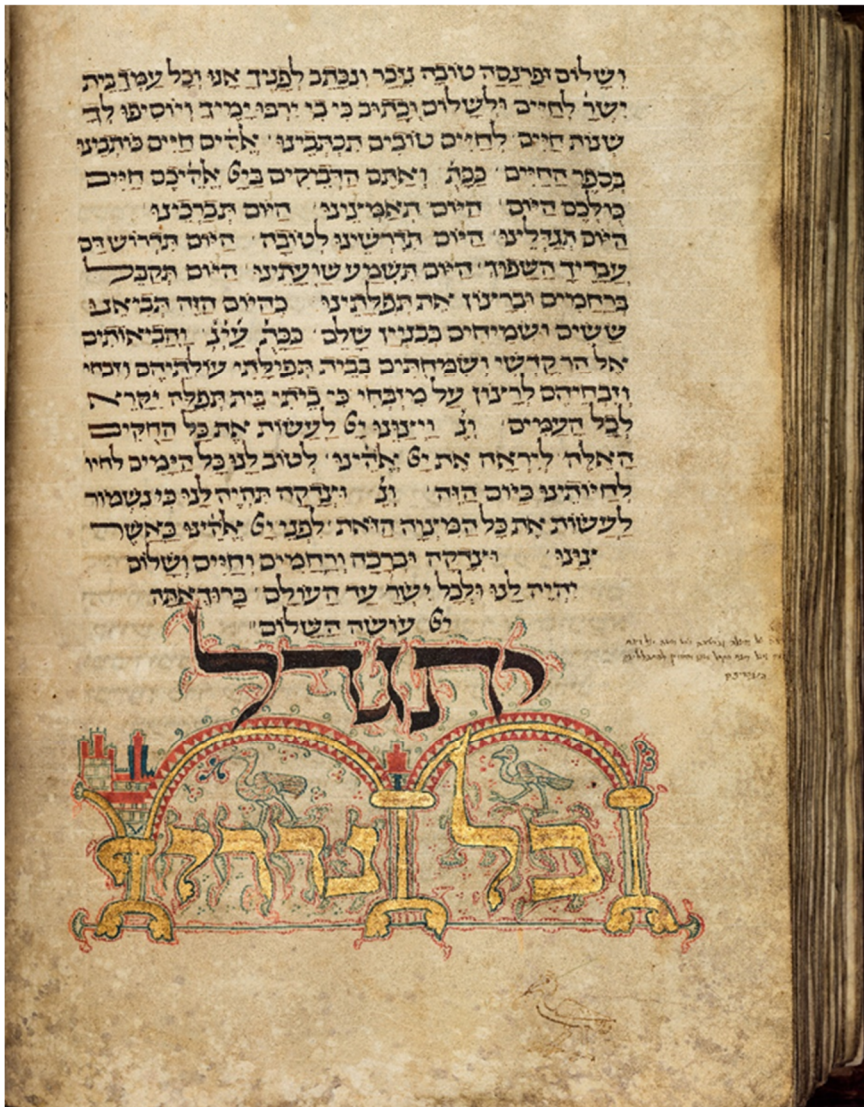 ושלום ופרנסה טובה ניזכר ונכתב לפניך אנו וכל עמך בית
ישר לחיים ולשלום וכתוב כי בי ירבו ימיך ויוסיפו לך
שנות חיים לחיים טובים תכתבינו אלהים חיים כותבינו
בספר החיים ככת ואתם הדביקים ביי אלהיכם חיים
כולכם היום היום תאמצינו היום תברכינו
היום תגדלינו היום תדרשינו לטובה היום תדרוש דם
עבדיך השפוך היום תשמע שועתינו היום תקבל
ברחמים וברצון את תפלתינו כהיום הזה תביאנו
ששים ושמיחים בבניין שלם ככת והביאותים
אל הר קדשי ושמחתים בבית תפילתי עולתיהם וזבחי
וזבחיהם לרצון על מזבחי כי ביתי בית תפלה יקרא
לכל העמים ונ ויצונו יי לעשות את כל החקים
האלה ליראה את יי אלהינו לטוב לנו כל הימים לחיו
לחיותינו כיום הזה ונ וצדקה תהיה לנו כי נשמור
לעשות את כל המצוה הזאת לפני יי אלהינו כאשר
ציונו וצדקה וברכה ורחמים וחיים ושלום
יהיה לנו ולכל ישר עד העולם ברוך אתה
יי עושה השלום
יתגדל
כל נדרי